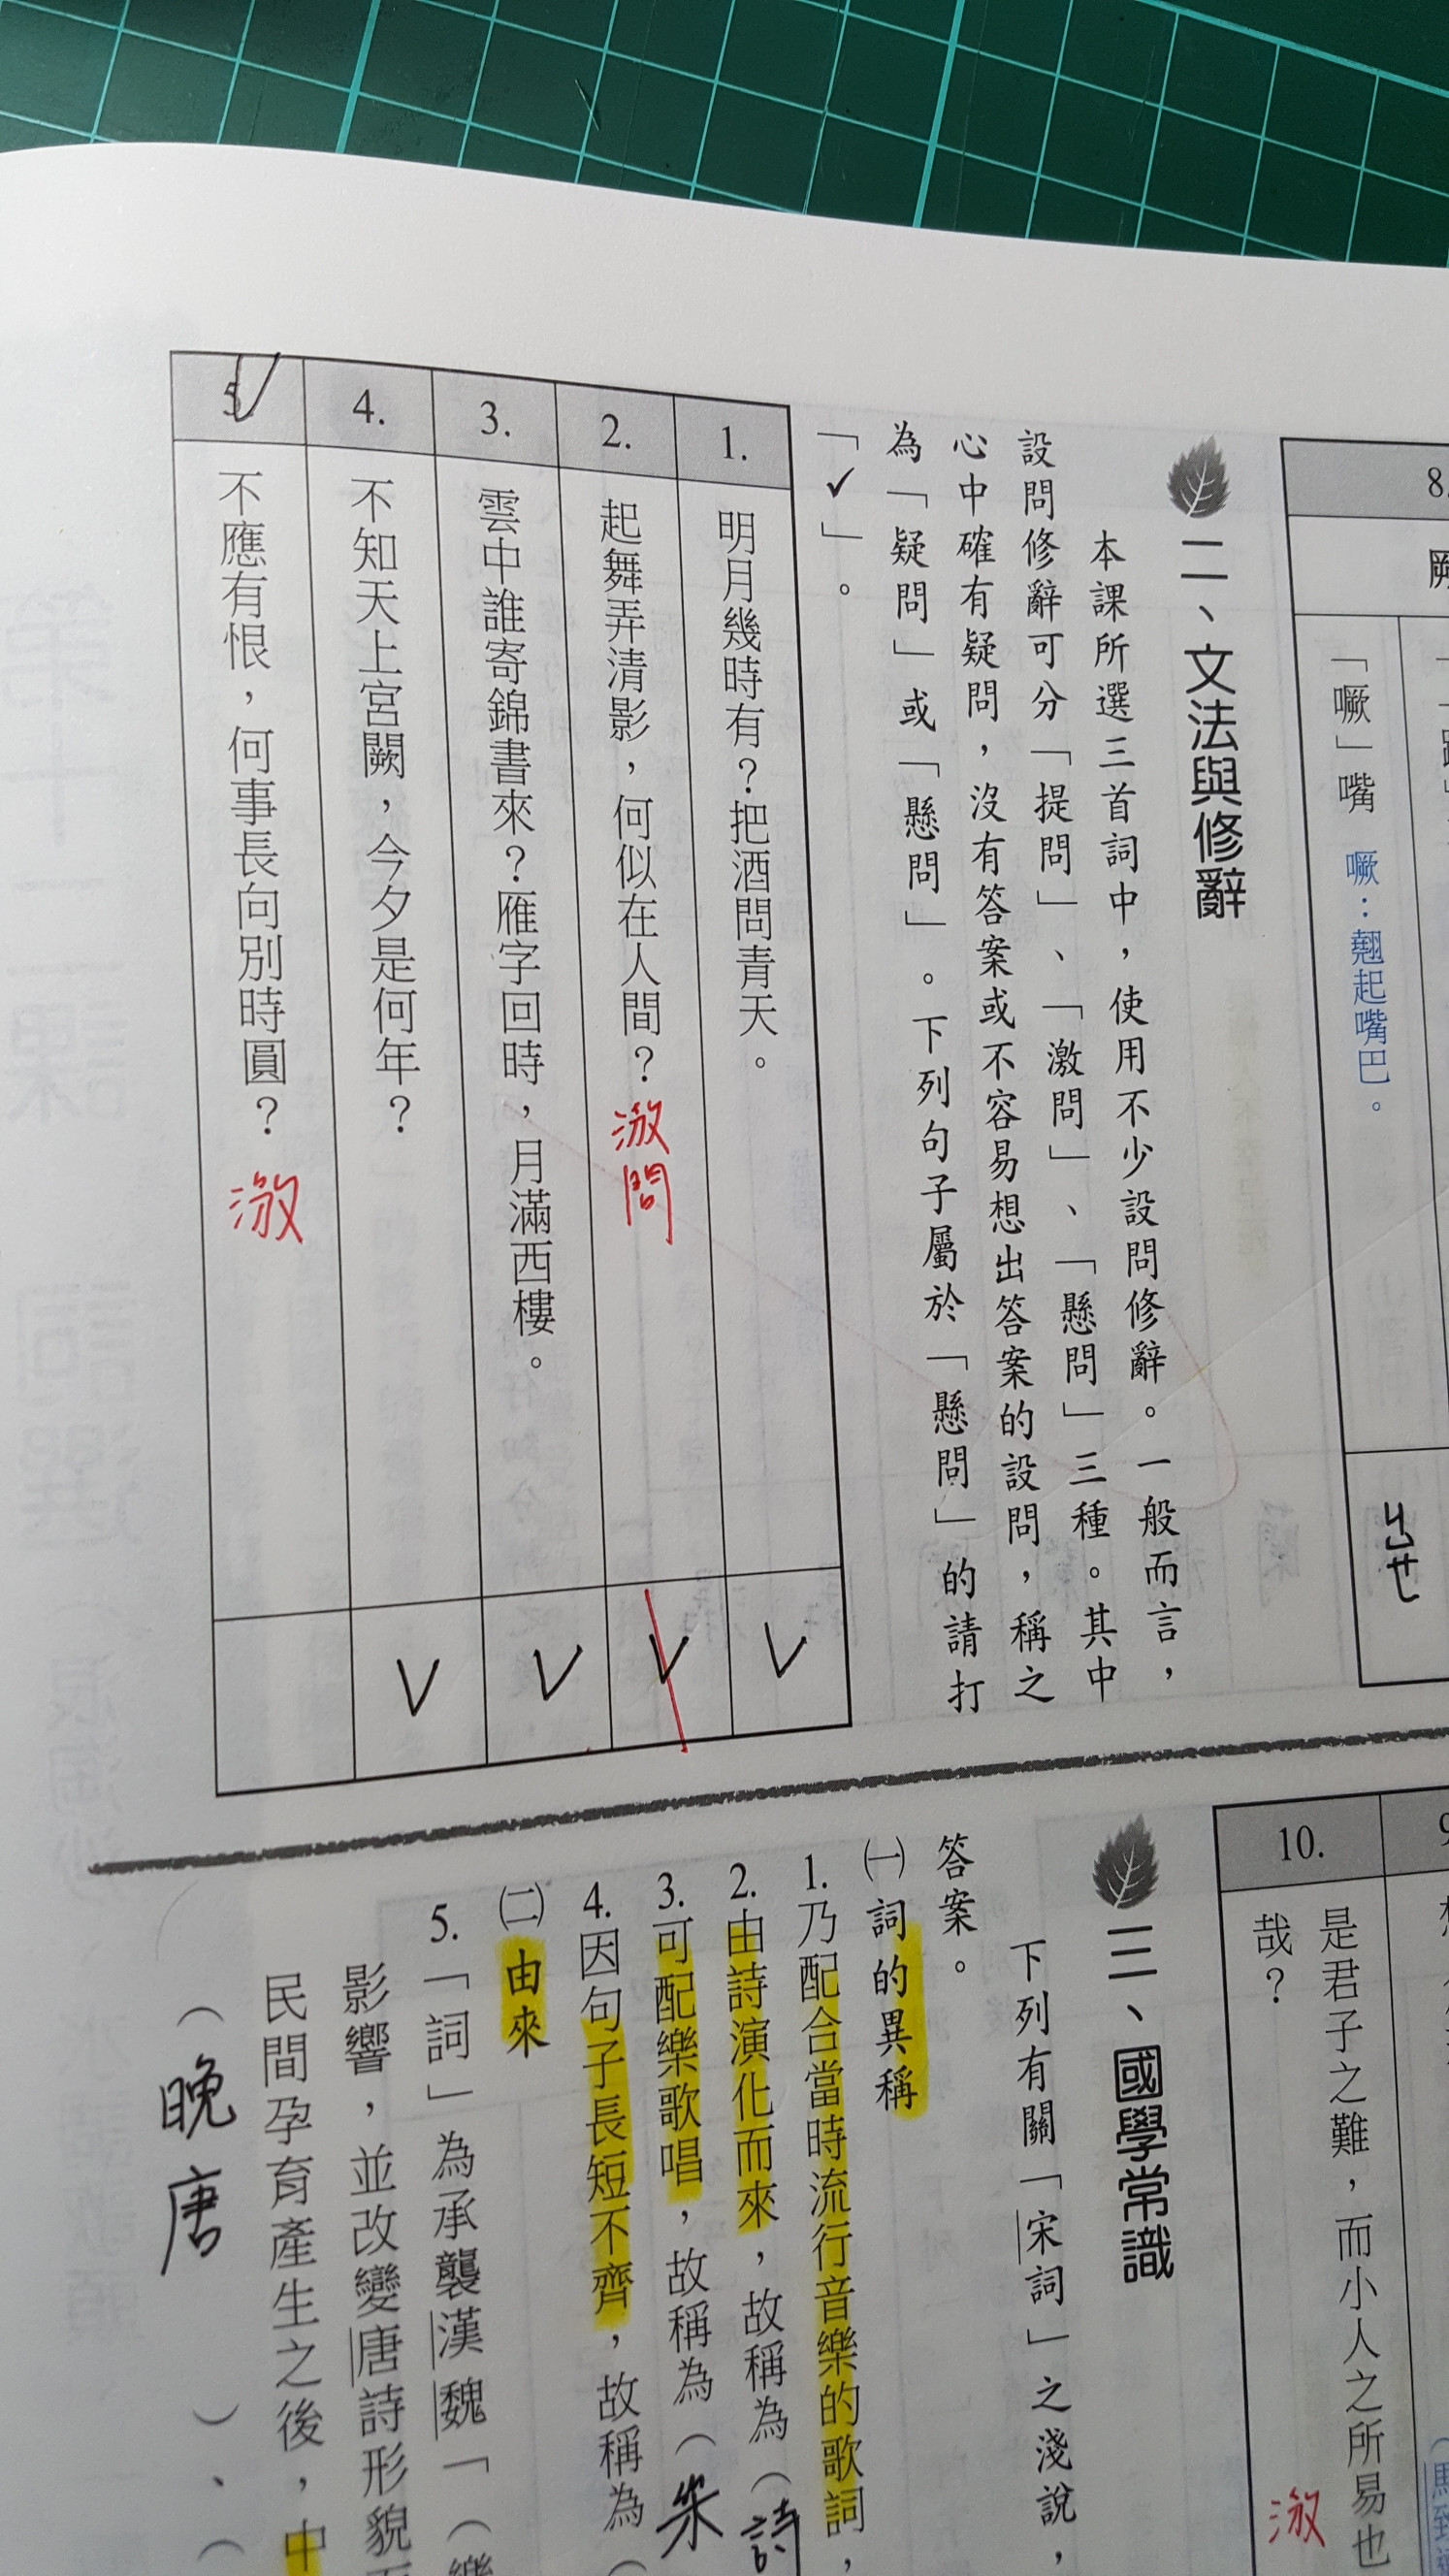 8.
「噘」嘴 噘：翹起嘴巴。
ㄐㄩㄝ
二、文法與修辭
本課所選三首詞中，使用不少設問修辭。一般而言，
設問修辭可分「提問」、「激問」、「懸問」三種。其中
心中確有疑問，沒有答案或不容易想出答案的設問，稱之
為「疑問」或「懸問」。下列句子屬於「懸問」的請打
「✓」。
1. 明月幾時有？把酒問青天。 V
2. 起舞弄清影，何似在人間？ 激問 V
3. 雲中誰寄錦書來？雁字回時，月滿西樓。 V
4. 不知天上宮闕，今夕是何年？ V
5. V 不應有恨，何事長向別時圓？ 激
10.
是君子之難，而小人之所易也
哉？ 激
三、國學常識
下列有關「宋詞」之淺說，
答案。
㈠詞的異稱
1.乃配合當時流行音樂的歌詞，
2.由詩演化而來，故稱為（詩
3.可配樂歌唱，故稱為（
4.因句子長短不齊，故稱為（
㈡由來
5.「詞」為承襲漢魏「（樂
影響，並改變唐詩形貌而
民間孕育產生之後，中
（晚唐）、（